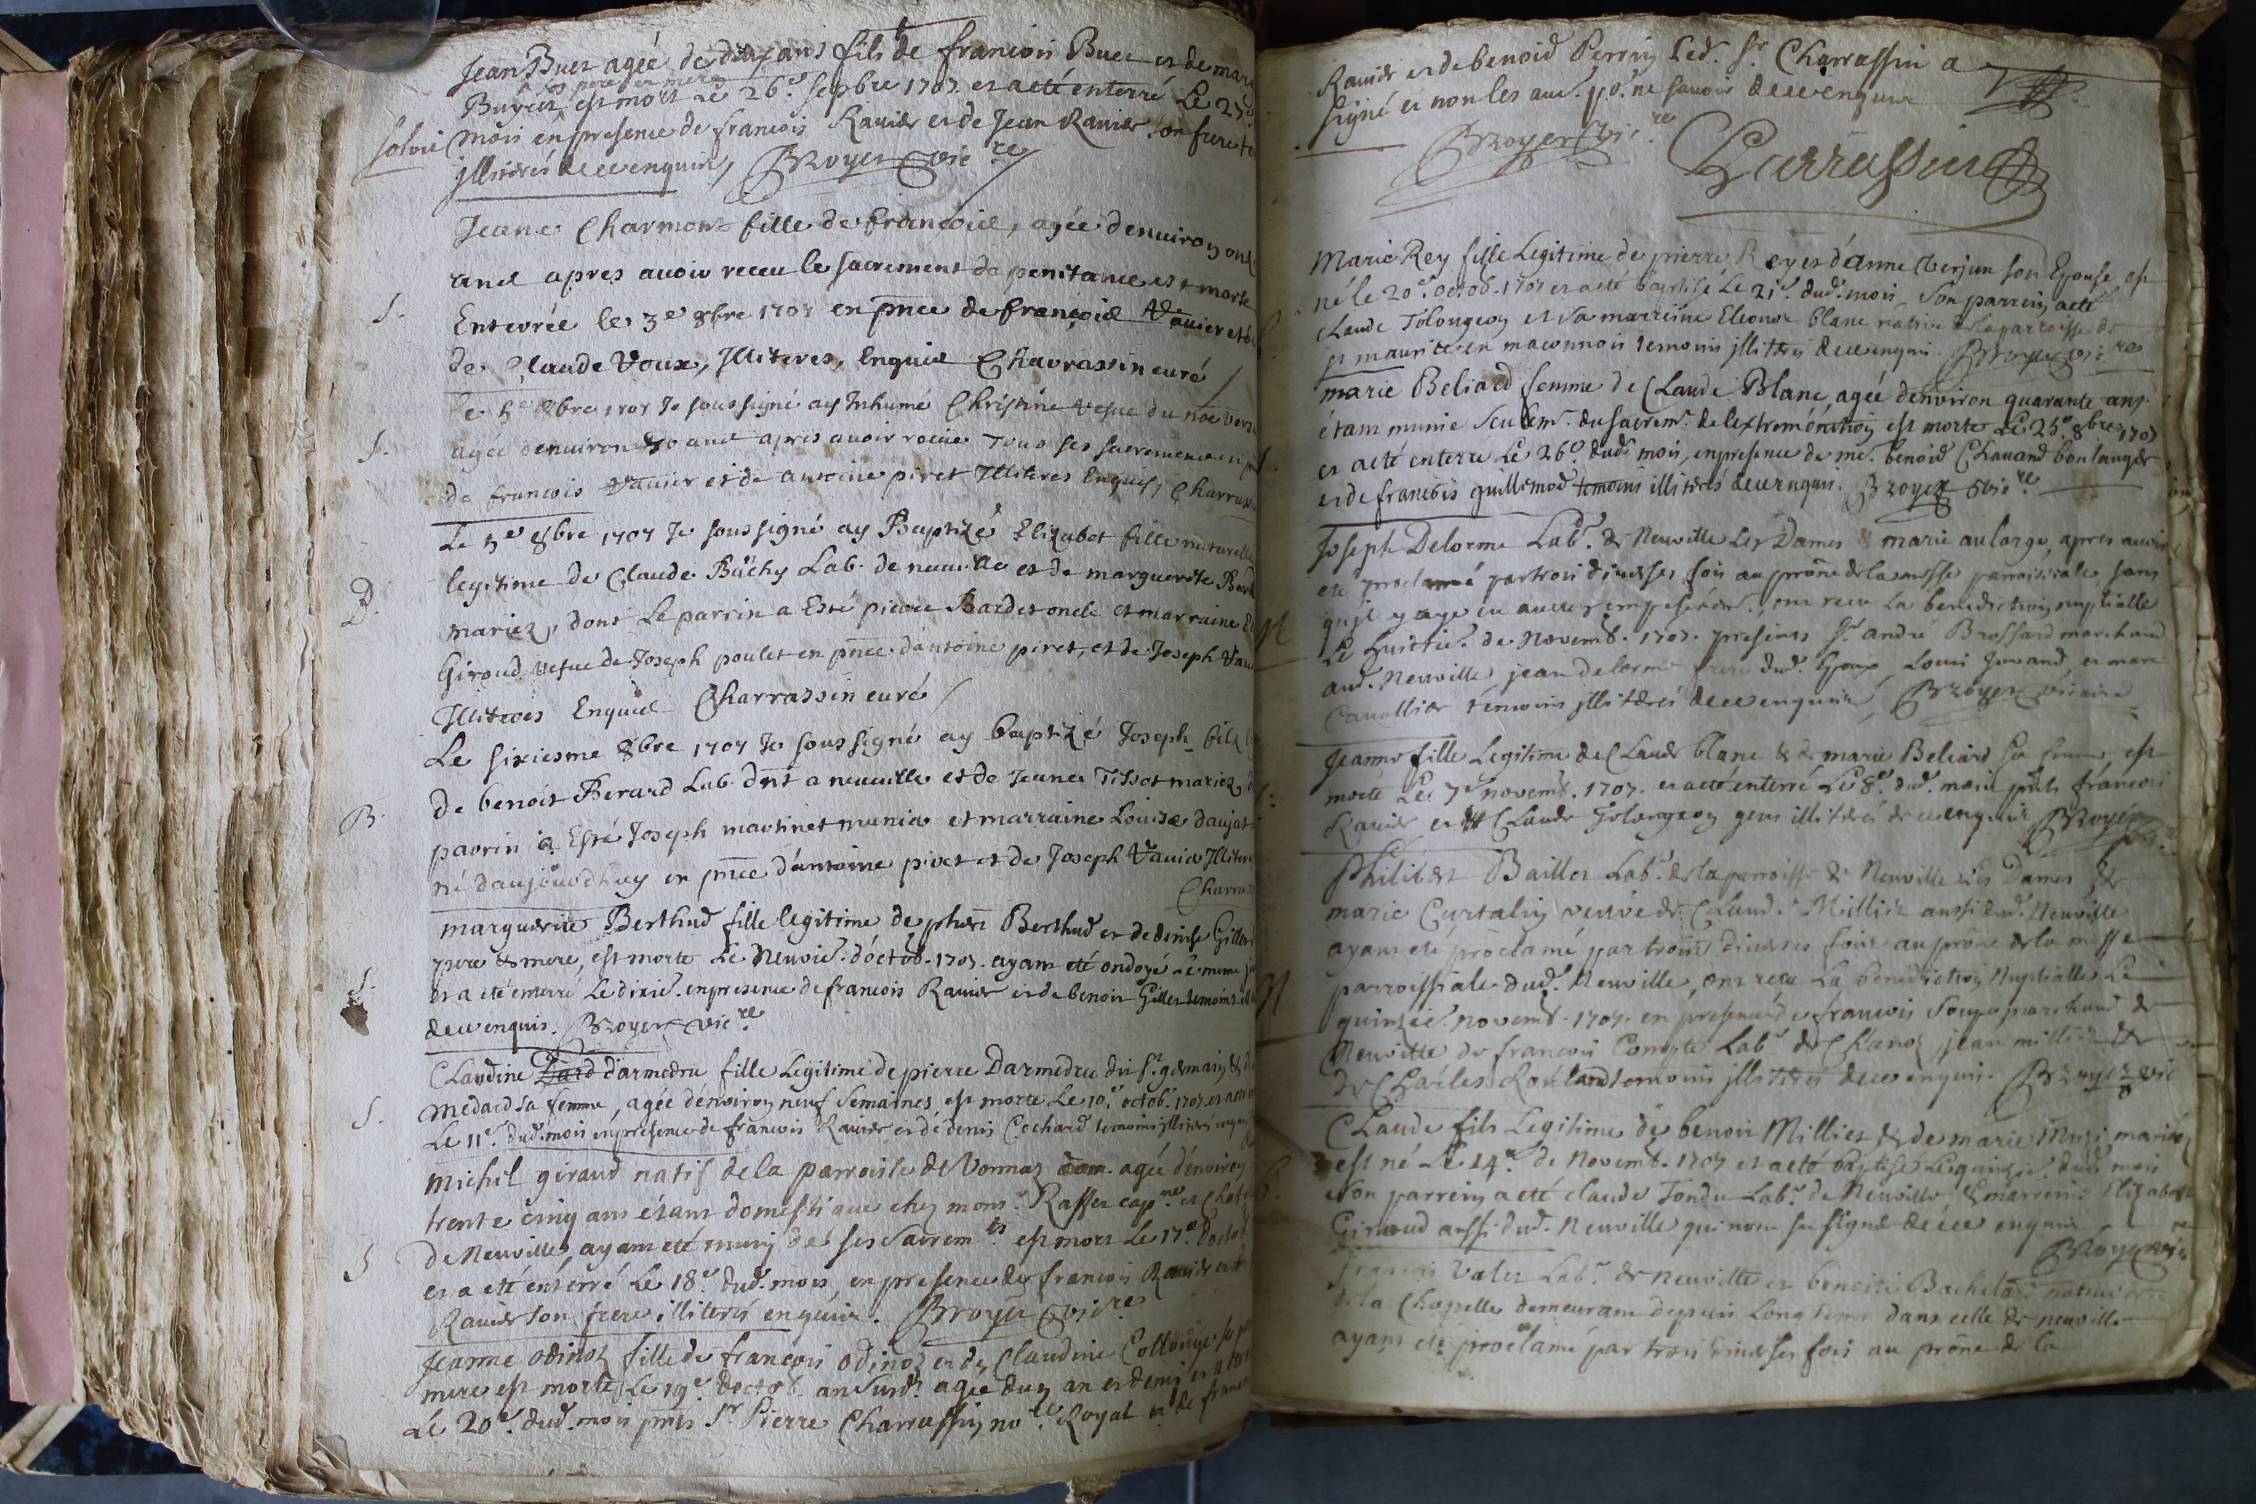 Jean Buet agée de deux ans fils de francois Buet et de marie
a ses pere et mere
Buyret est mort Le 26.e sepbre 1707 et a eté enterré Le 27.e
solvi
mois en presence de francois Ravier et de Jean Ravier son frere
illiterés de ce enquis, Broyer vic.re
Jeane Charmont fille de françois, agée denviron onze
ans apres avoir receu le sacrement de penitance est morte
S.
Enterrée le 3e 8bre 1707 en pnce de françois Ravier et
de Claude Voux, Illiteres, Enquis Charrassin curé
le 5e 8bre 1707 Je soussigné ay Inhumé Christine vefue du noe
S.
agée denviron 80 ans apres avoir receue Tous ses sacremens en
de francois Ravier et de antoine piret Illiteres Enquis, Charrassin
Le 5e 8bre 1707 Je soussigné ay Baptizé Elizabet fille naturelle
B.
legitime de Claude Bûchy Lab. de neuville et de marguerite
mariez, dont Le parrin a Esté pierre Bardet oncle et marraine
Giroud vefue de Joseph poulet en pnce dantoine piret, et de Joseph
Illiteres Enquis Charrassin curé
Le sixiesme 8bre 1707 Je soussigné ay baptizé Joseph fils
B.
de benoit Berard Lab. dnt a neuville et de Jeane Tissot mariez,
parrin a Esté Joseph martinet munier et marraine Louise daujat
né daujourdhuy en pnce dantoine piret et de Joseph Ravier
Charrassin
marguerite Berthud fille legitime de phert Berthud et de denise Gillet
pere & mere, est morte Le Neuvie. doctob. 1707. ayant eté ondoyé Le meme
S.
et a eté enterré Le dixie. en presence de francois Ravier et de benoit Gillet temoins
de ce enquis. Broyer vic.re
Claudine darmedru fille Legitime de pierre Darmedru dit st. germain &
S.
medard sa femme, agée denviron neuf semaines est morte Le 10.e octob. 1707. et a eté
Le 11.e dud. mois en presence de francois Ravier et de denis Cochard temoins illiterés
michel giraud natif de la parroisse de Vonnaz agée denviron
trente cinq ans étant domestique chez mons.r Raffet cap.ne et Chat
S
de Neuville, ayant eté muny de ses sacrem.ts est mort Le 17.e doctob
et a eté enterré Le 18.e dud. mois, en presence de francois Ravier et
Ravier son frere illiterés enquis. Broyer vic.re
Jeanne odinoz fille de francois odinoz et de Claudine Collonge sa
mere est morte Le 19.e doctob. an susd. agée dun an et demi et a
Le 20.e dud. mois pnts Sr Pierre Charrassin no.re Royal et de
Ravier et de benoid Perrin Led. Sr Charrassin a
signé et non les autr. po. ne savoir de ce enquis
Broyer vic.re
Charrassin
Marie Rey fille Legitime de pierre Rey et d'anne Verjun son Epouse est
né le 20.e octob. 1707 et a eté baptisé Le 21.e dud. mois, son parrein a eté
Claude Tolongeon et sa marreine Eleonor blanc native de la parroisse de
st maurice en maconnois temoins illiterés de ce enquis. Broyer vic.re
S.
marie Beliard femme de Claude Blanc, agée denviron quarante ans
étant munie seulem.t du sacrem.t de lextremónction est morte Le 25.e 8bre 1707
et a eté enterré Le 26.e dud. mois, en presence de me. benoid Chanard boulanger
et de francois guillemod temoins illiterés de ce enquis. Broyer vic.re
Joseph Delorme Lab.r de Neuville Les Dames & marie aularge, apres avoir
eté proclamé par trois diverses fois au prone de la messe parroissiale sans
N
quil y aye eu aucun empeschem. ont receu La benediction nuptialle
Le huictie. de Novemb. 1707. presents Sr. andré Brossard marchand
aud. Neuville jean delorme frere dud. Epoux, Louis Juvand, et marc
Cavallier témoins illiterés de ce enquis, Broyer vicaire
Jeanne fille Legitime de Claude blanc & de marie Beliard sa femme, est
S.
morte Le 7e novemb. 1707. et a eté enterré Le 8.e dud. mois pnts francois
Ravier et de Claude Tolongeon gens illiterés de ce enquis Broyer
Philibert Baillet Lab.r de la parroisse de Neuville Les Dames &
marie Curtalin veuve de Claud. Millier aussi dud. Neuville
ayant eté proclamé par trois diverses fois au prone de la messe
N
parroissiale dud. Neuville, ont receu La bénediction Nuptialle Le
quinzie. novemb. 1707. en presence de francois Soupe marchand de
Neuville de francois Compte Lab.r de Chanoz, jean millier &
de Charles Rolland temoins illiteres de ce enquis. Broyer vic
Claude fils Legitime de benoit Millier & de marie mariez
est né Le 14.e de Novemb. 1707 et a eté baptisé Le quinzie. dud. mois
son parrein a eté claude Tondu Lab.r de Neuville, & marreine Elizabet
Giraud aussi dud. Neuville qui nont su signer de ce enquis
Broyer vic
francois Valet Lab.r de Neuville et benoite Bachelard native
de la Chapelle demeurant depuis Longtems dans celle de neuville
ayant eté proclamé par trois diverses fois au prône de la